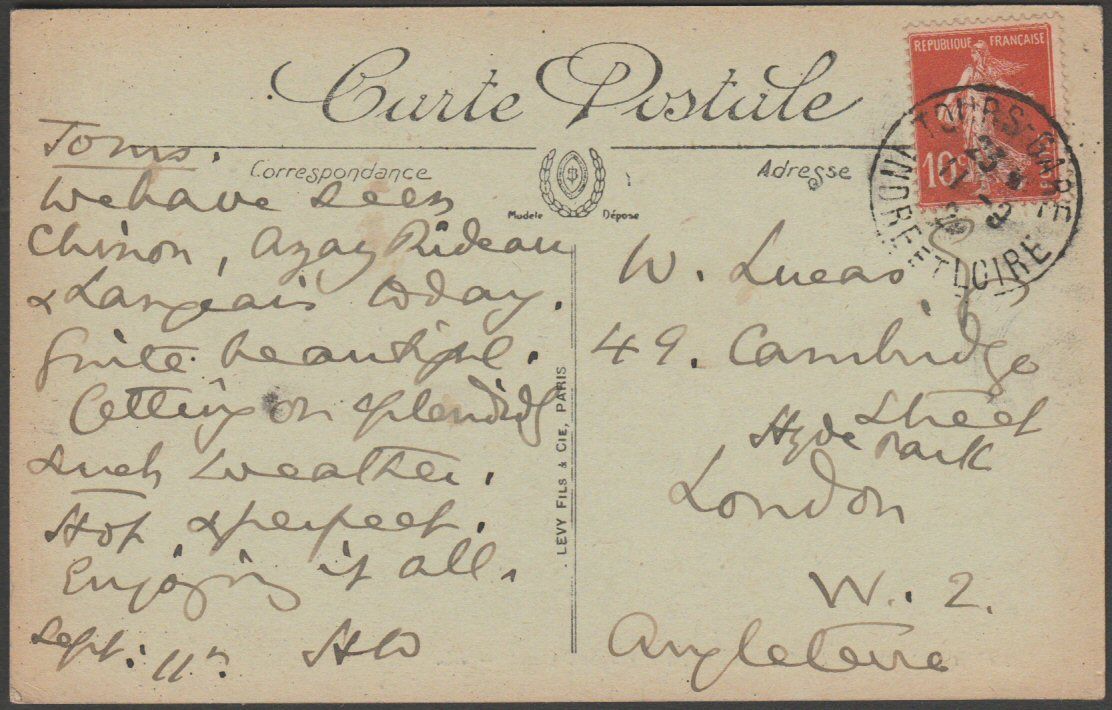 Carte Postale
RÉPUBLIQUE FRANÇAISE
10c
TOURS-GARE
23
11 - 9
INDRE-ET-LOIRE
Correspondance
Adresse
Modele Déposé
Tours.
We have seen
Chinon, Azay Rideau
& Langeais today.
Quite beautiful.
Getting on splendidly
such weather.
Hot & perfect.
Enjoying it all.
Sept. 11th
LEVY FILS & CIE, PARIS
W. Lucas
49. Cambridge
Street
Hyde Park
London
W. 2.
Angleterre